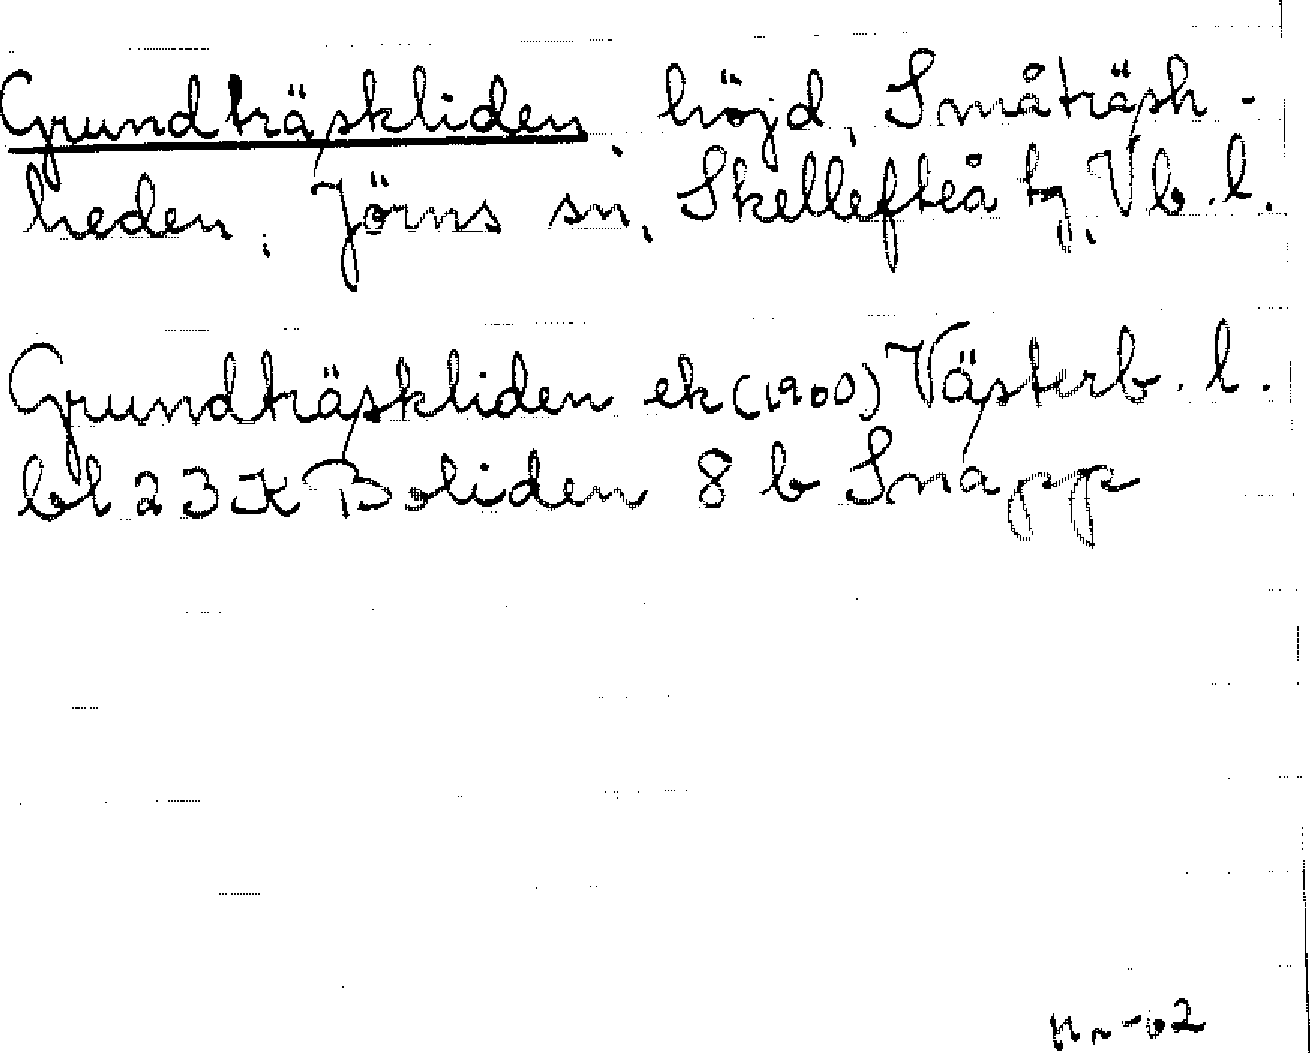 Grundträskliden, höjd, Småträsk-
heden, Jörns sn, Skellefteå tg, Vb. l.
Grundträskliden ek (1960) Västerb. l.
bl 23K Boliden 8 b Snapp
-62